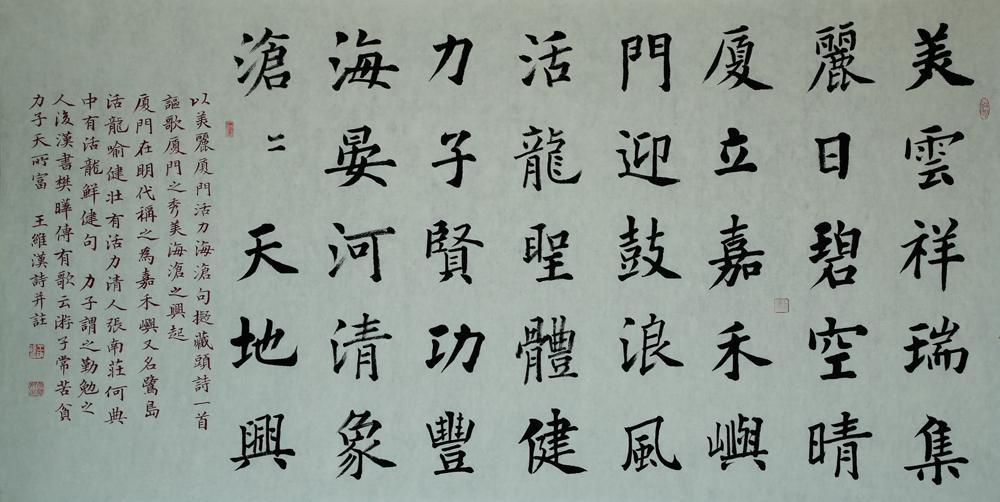 美雲祥瑞集
麗日碧空晴
廈立嘉禾嶼
門迎鼓浪風
活龍聖體健
力子賢功豐
海晏河清象
滄〻天地興
以美麗廈門活力海滄句擬藏頭詩一首
謳歌廈門之秀美海滄之興起
廈門在明代稱之為嘉禾嶼又名鷺島
活龍喻健壯有活力清人張南莊何典
中有活龍鮮健句 力子謂之勤勉之
人後漢書樊曄傳有歌云游子常苦貧
力子天所富 王維漢詩并註